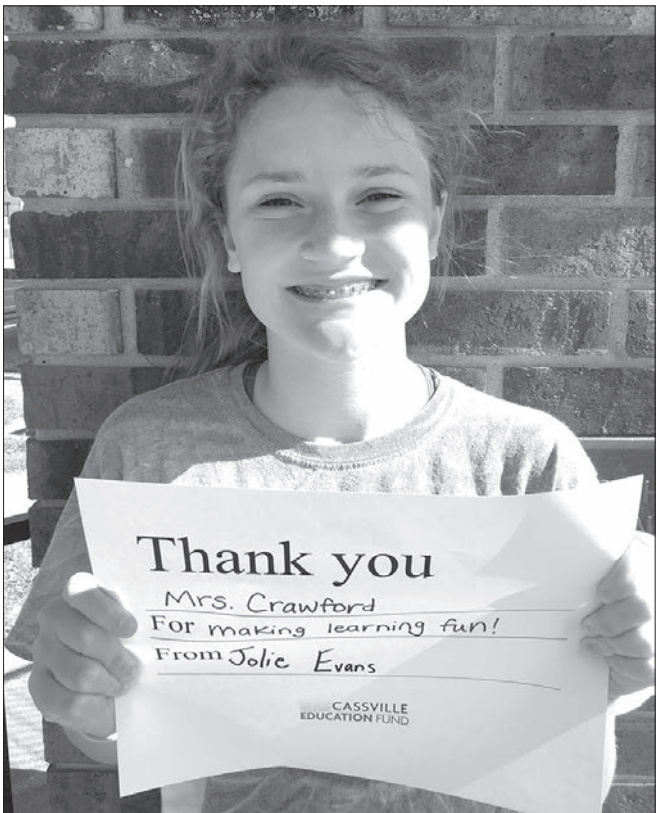 Thank you
Mrs. Crawford
For making learning fun!
From Jolie Evans
CASSVILLE
EDUCATION FUND